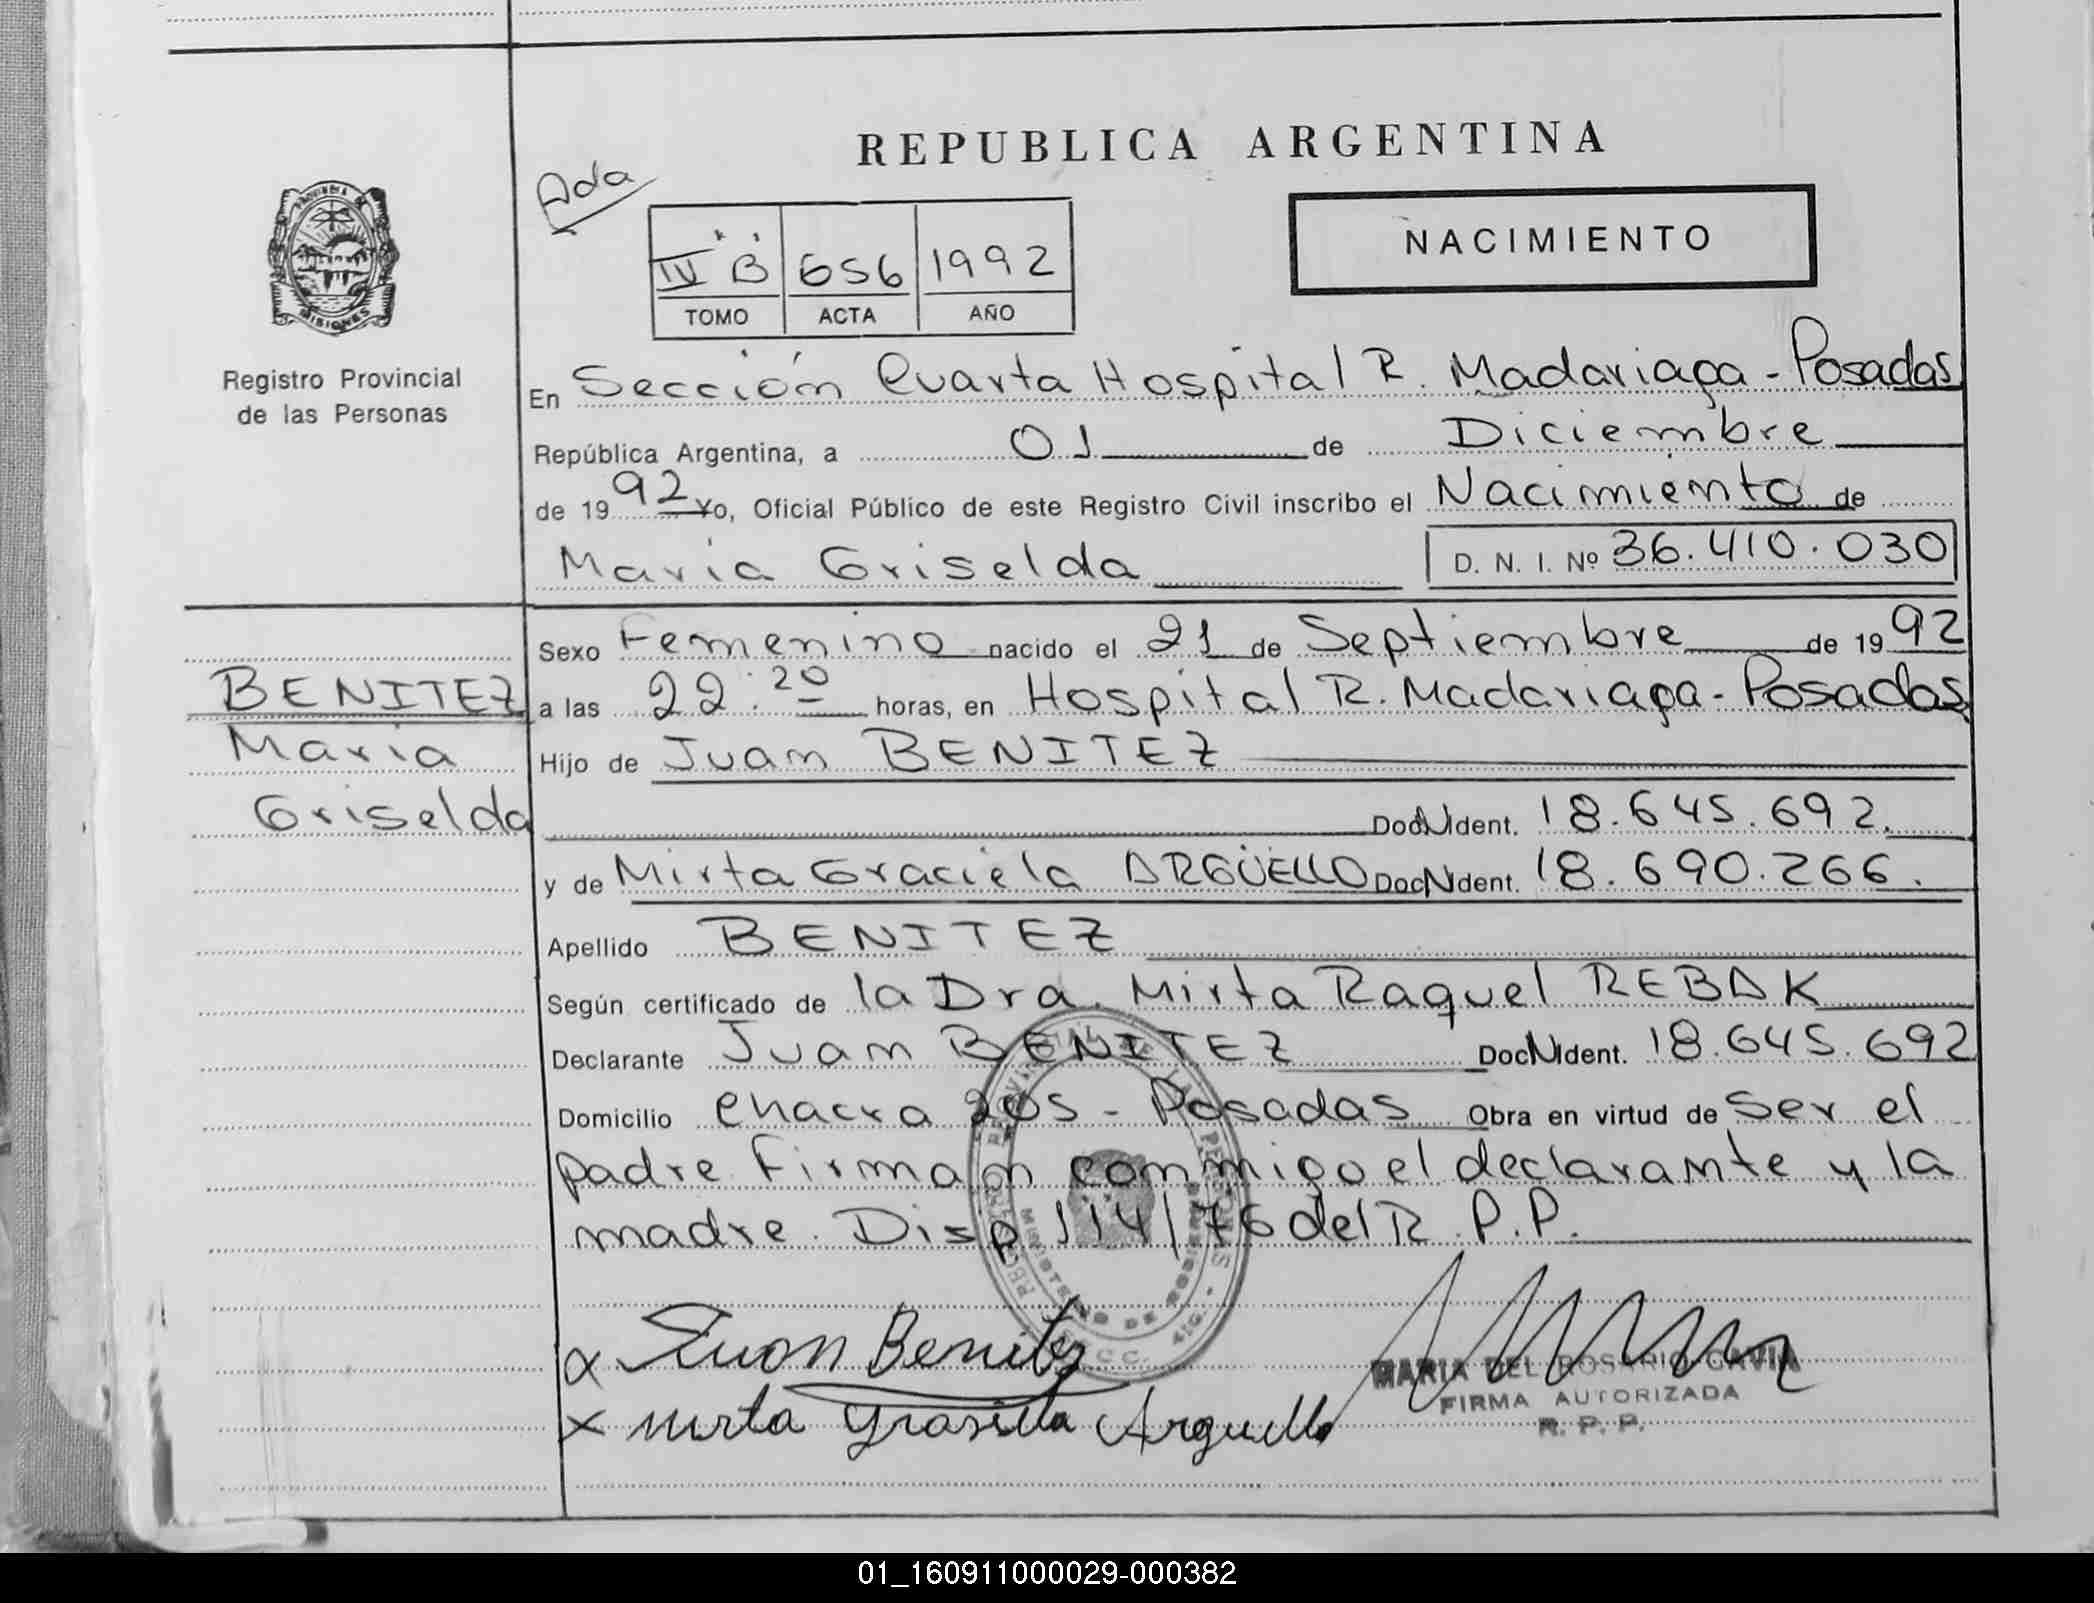 REPUBLICA ARGENTINA
Ada
NACIMIENTO
IV B 656 1992
TOMO ACTA AÑO
PROVINCIA DE
MISIONES
Registro Provincial
de las Personas
En Sección Cuarta Hospital R. Madariaga - Posadas
República Argentina, a 01 de Diciembre
de 1992 Yo, Oficial Público de este Registro Civil inscribo el Nacimiento de
Maria Griselda D. N. I. Nº 36.410.030
BENITEZ
Maria
Griselda
Sexo Femenino nacido el 21 de Septiembre de 1992
a las 22:20 horas, en Hospital R. Madariaga - Posadas
Hijo de Juan BENITEZ
Doc Ident. 18.645.692.
y de Mirta Graciela ARGÜELLO Doc Ident. 18.690.266.
Apellido BENITEZ
Según certificado de la Dra. Mirta Raquel REBAK
Declarante Juan BENITEZ Doc Ident. 18.645.692
Domicilio Chacra 205 - Posadas Obra en virtud de ser el
padre. Firman conmigo el declarante y la
madre. Disp 114/76 del R.P.P.
MINISTERIO DE GOBIERNO
x Juan Benitez
x Mirta Grasiela Arguello
MARIA DEL ROSARIO GAVIA
FIRMA AUTORIZADA
R. P. P.
01_160911000029-000382